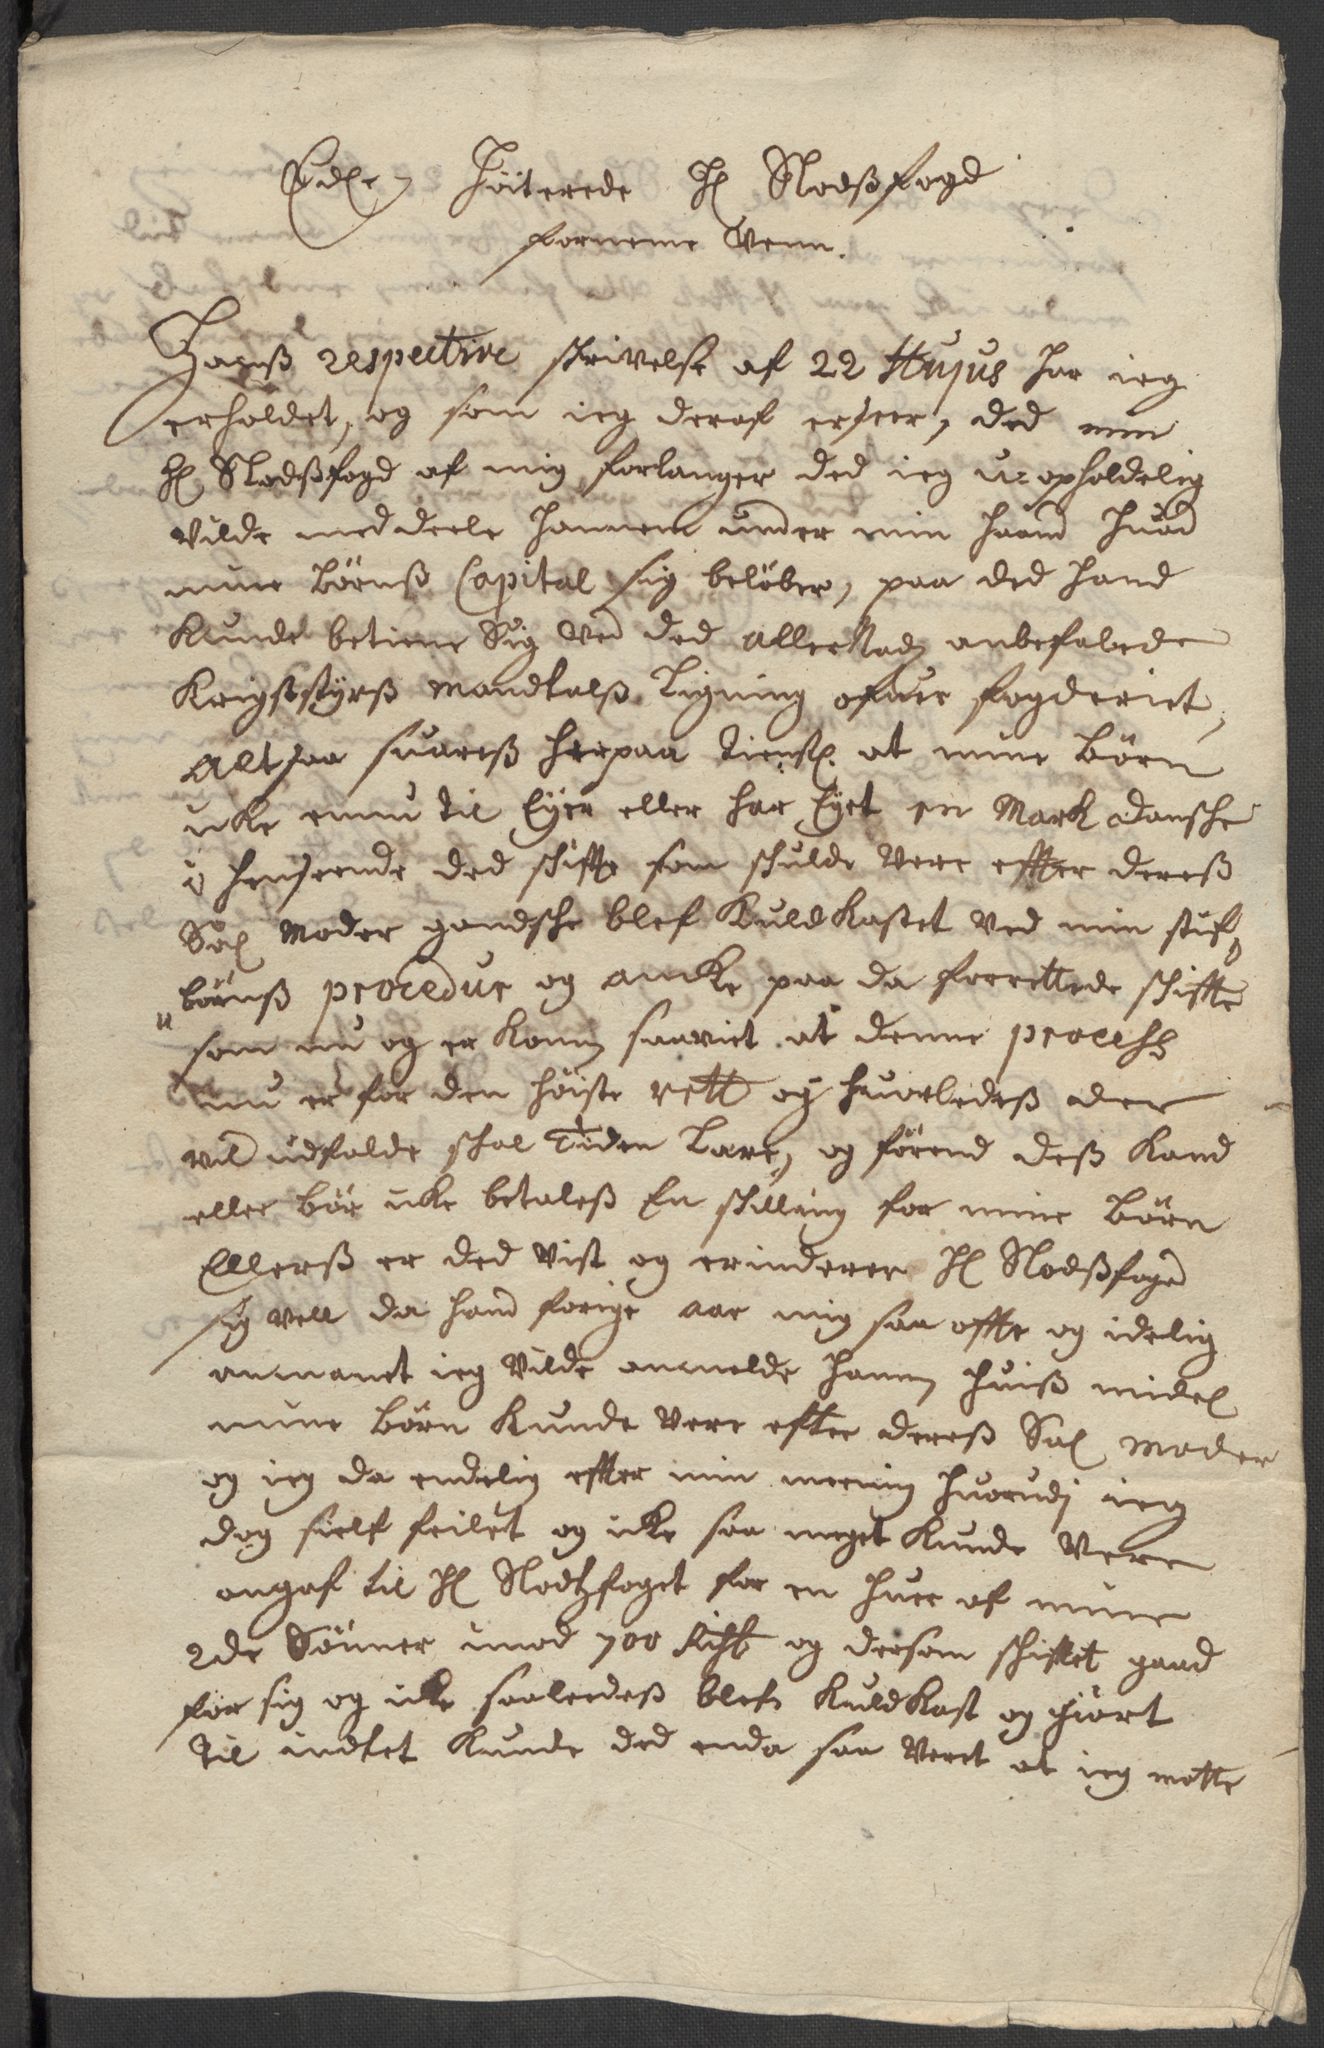 Edle Höiterede Hr Slodßfogd
fornemme Venn.
Hanß respective skrivelse af 22 Hujus har ieg
erholdet, og som ieg deraf erseer, ded min
Hr Slodßfogd af mig forlanger ded ieg uopholdelig
vilde meddeele hannem under min haand huad
mine börnß Capital sig belöber, paa ded hand
kunde betiene Sig ved ded allernaad anbefalede
Krigsstyrß mandtalß Ligning ofuer fogderiet,
Altsaa suareß herpaa tienstl. at mine börn
icke ennu til Eyer eller har Eyet en Mark dansche
i henseende ded schifte som schulde vere effter dereß
Sal Moder gandsche blef kuldkastet ved min stif,
börnß procedur og ancke paa da forrettede schiffte
som nu og er kommen saaviet at denne process
nu er for den höiste rett og huorledeß der
vil udfalde schal Tiden Lære, og förend deß kand
eller bör icke betaleß En skilling for mine börn
Ellerß er ded vist og erinderer Hr Slodßfogd
sig vell da hand forige aar mig saa offte og idelig
anmanet ieg vilde anmelde hannem huiß midel
mine börn kunde vere efter dereß Sal moder
og ieg da endelig effter min meening huorudj ieg
dog sielf feilet og icke saa meget kunde vere
angaf til Hr Slodtzfoget for en huer af mine
2de Sönner imod 700 Rixdr og dersom schiftet gaad
for sig og icke saaledeß blefn kuldkast og giort
til indtet kunde ded enda saa veret at ieg motte